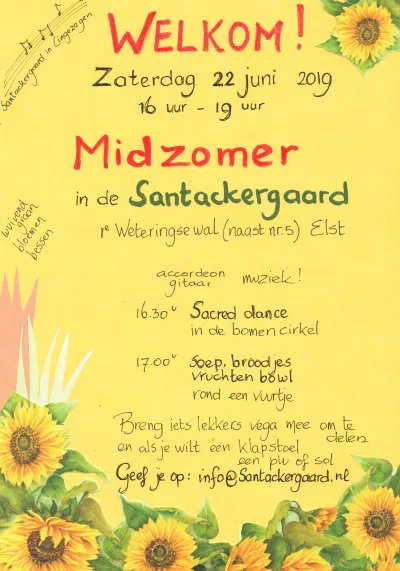 Santackergaard in Lingezegen
WELKOM!
Zaterdag 22 juni 2019
16 uur - 19 uur
Midzomer
in de Santackergaard
1e Weteringsewal (naast nr. 5) Elst
wuivend
graan
bloemen
bessen
accordeon
gitaar muziek!
16.30u Sacred dance
in de bomencirkel
17.00u Soep, broodjes
vruchten bowl
rond een vuurtje
Breng iets lekkers vega mee om te
delen
en als je wilt een klapstoel
een plu of sol
Geef je op: info@Santackergaard.nl